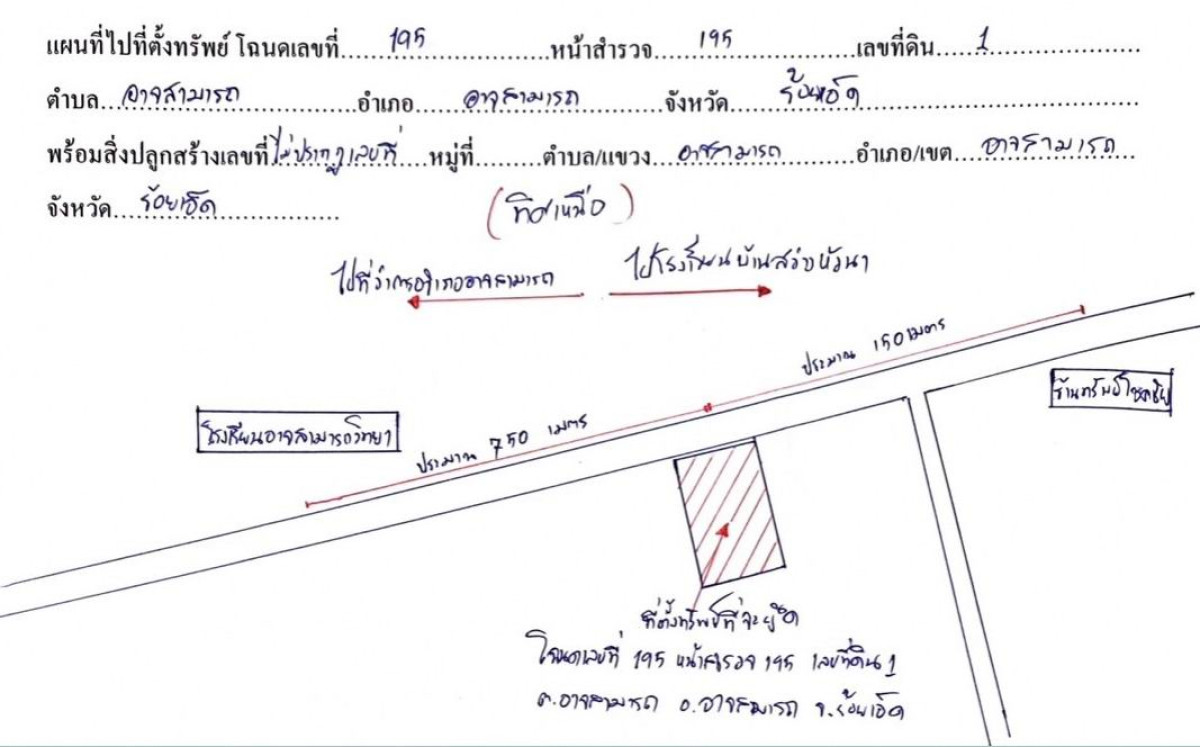 แผนที่ไปที่ตั้งทรัพย์ โฉนดเลขที่ 195 หน้าสำรวจ 195 เลขที่ดิน 1
ตำบล อาจสามารถ อำเภอ อาจสามารถ จังหวัด ร้อยเอ็ด
พร้อมสิ่งปลูกสร้างเลขที่ ไม่ปรากฏเลขที่ หมู่ที่ ตำบล/แขวง อาจสามารถ อำเภอ/เขต อาจสามารถ
จังหวัด ร้อยเอ็ด
(ทิศเหนือ)
ไปที่ว่าการอำเภออาจสามารถ
ไปโรงเรียนบ้านสว่างหัวนา
ประมาณ 150 เมตร
ร้านทรัพย์โชคชัย
โรงเรียนอาจสามารถวิทยา
ประมาณ 750 เมตร
ที่ตั้งทรัพย์ที่จะยึด
โฉนดเลขที่ 195 หน้าสำรวจ 195 เลขที่ดิน 1
ต.อาจสามารถ อ.อาจสามารถ จ.ร้อยเอ็ด